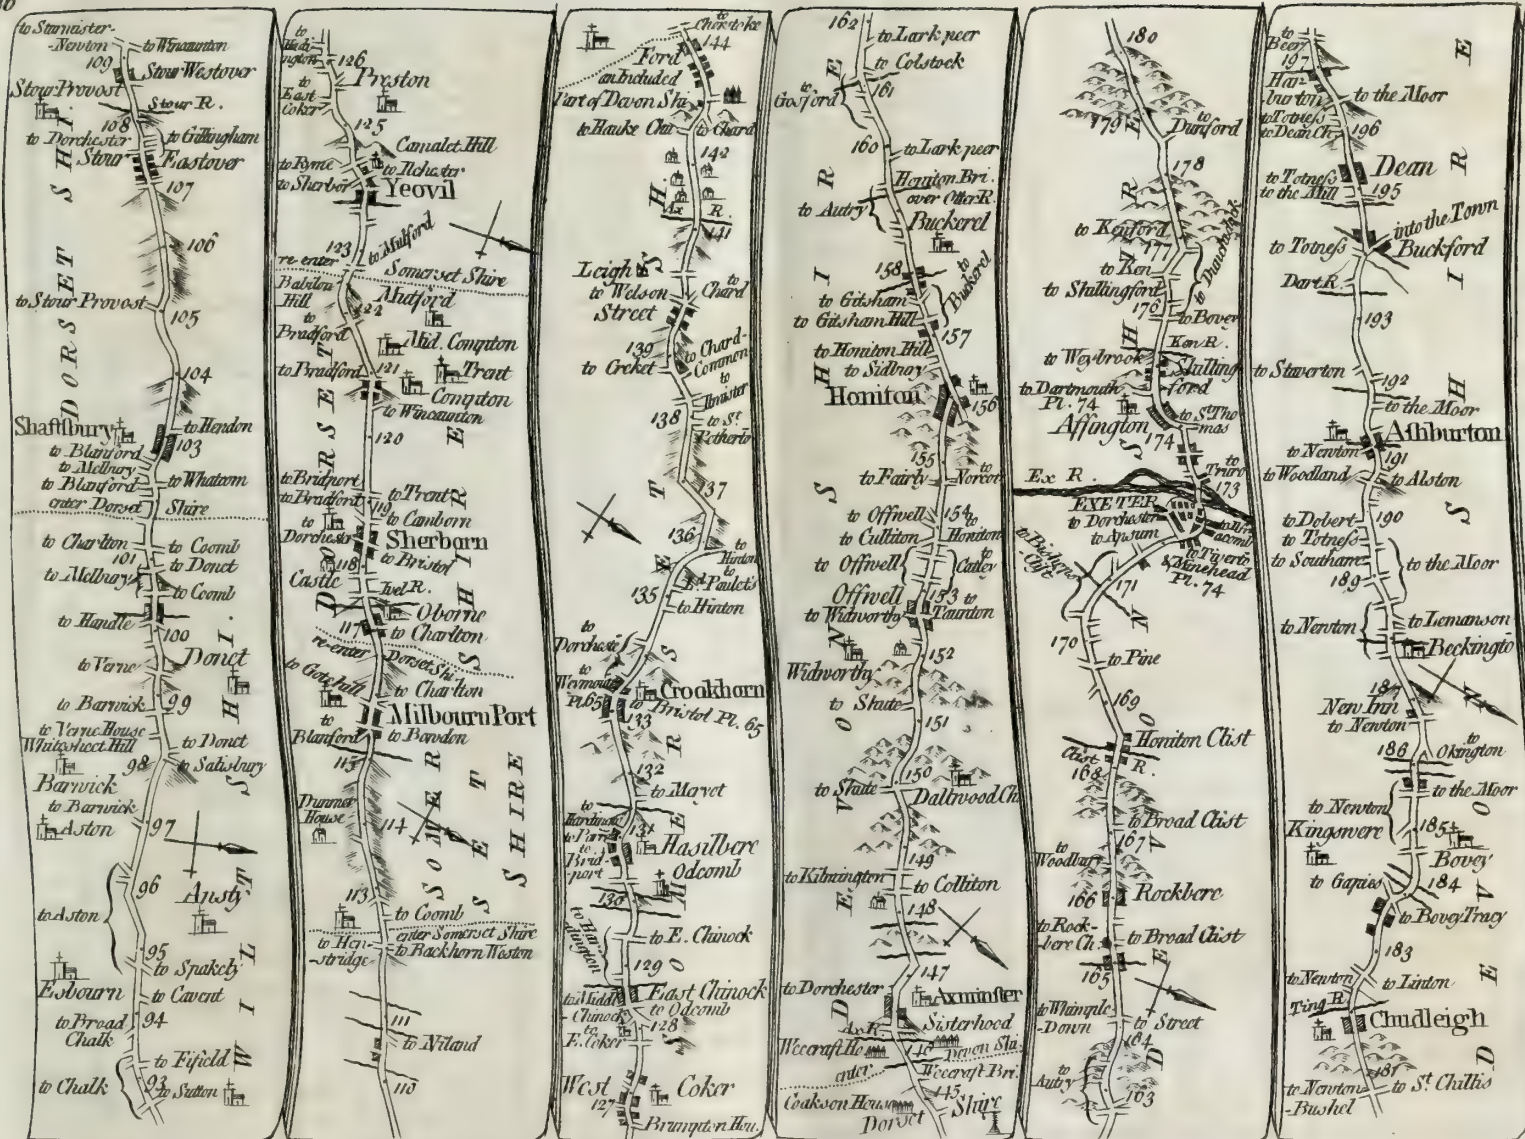 to Sturmister-
-Newton
to Wincaunton
109
Stour Westover
Stour Provost
Stour R.
108
to Dorchester
to Gillingham
Stour
Eastover
107
106
to Stour Provost
105
104
Shaftsbury
to Hendon
103
to Blanford
to Melbury
to Blanford
to Whatcom
enter Dorset
Shire
to Charlton
to Coomb
101
to Donet
to Melbury
to Coomb
to Handle
100
Donet
to Verne
to Barwick
99
to Verne House
Whitesheet Hill
to Donet
98
to Salisbury
Barwick
to Barwick
Aston
97
96
Ansty
to Aston
95
to Spakely
Esbourn
to Cavent
to Broad
Chalk
94
to Fifield
to Chalk
93
to Sutton
DORSET SHI.
WILTSHI.
126
Preston
to
East
Coker
125
Camalet Hill
to Ryme
to Ilchester
to Sherbor
Yeovil
123
to Mulford
re enter
Somerset Shire
Babilon
Hill
Mutford
122
to
Bradford
Mid. Compton
to Bradford
121
Trent
Compton
to Wincaunton
120
to Bridport
to Trent
to Bradford
119
to Camborn
to
Dorchester
Sherborn
118
to Bristol
Castle
Ivel R.
Oborne
117
to Charlton
re-enter
Dorset Shi.
to Gorehill
to Charlton
Milbourn Port
to
Blanford
to Bowdon
115
Dunmer
House
114
113
to Coomb
enter Somerset Shire
to Hen-
-stridge
to Backhorn Weston
111
to Niland
110
DORSET SHIRE
SOMER
SET
SHIRE
to
Cherstoke
144
Ford
an Included
Part of Devon Shi
to Hauke Chu
to Chard
142
Ax R.
141
Leigh
to Welson
to
Chard
Street
139
to Chard-
Common
to Creket
to
Ilmister
138
to St.
Petherto
37
136
to
Hinton
to
Ld. Paulet's
135
to Hinton
to
Dorcheste
to
Weymouth
Pl. 65
Crookhorn
to
Bristol Pl. 65
133
132
to Maryet
to
131
Hasilbere
to
Brid-
port
Odcomb
130
to E. Chinock
129
East Chinock
to Middle
Chinock
to Odcomb
128
to
E. Coker
West
Coker
127
Brumpton Hou.
SOMERSET SH.
162
to Lark peer
to Colstock
to
Gosford
161
160
to Lark peer
Honiton Bri.
over Otter R.
to Autry
Buckerel
158
to
Buckerel
to Gitsham
to Gitsham Hill
157
to Honiton Hill
to Sidbay
Honiton
156
155
to Fairly
to
Norcot
to Offwell
154
to
Honiton
to Culliton
to Offwell
to
Catley
Offwell
153
to
Taunton
to Widworthy
152
Widworthy
to Shute
151
150
to Shute
Daltwood Ch.
149
to Kilmington
to Colliton
148
147
to Dorchester
Axminster
Ax R.
Sisterhood
Weecraft Ho
146
Devon Shi.
enter
Weecraft Bri.
145
Coakson House
Dorset
Shire
DEVON SHIRE
180
179
to
Dunford
178
to Kenford
177
to Ken
to Shillingford
176
to Bover
Ken R.
to Weybrook
Shilling
ford
to Dartmouth
Pl. 74
to St. Tho
mas
Affington
174
to
Truro
173
Ex R.
EXETER
to Dorchester
to Apsum
to Tiverto
Minehead
Pl. 74
to Bishops
Clist
171
170
to Pine
169
Honiton Clist
Clist
R.
168
to Broad Clist
167
to
Woodbury
166
Rockbere
to Rock-
-bere Ch.
to Broad Clist
165
to Whimple
-Down
to Street
164
to
Autry
163
DEVON SHIRE
to
Beer
197
Har-
burton
to the Moor
to Totness
to Dean Ch.
196
Dean
to Totness
to the Mill
195
into the Town
Buckford
to Totness
Dart R.
193
to Staverton
192
to the Moor
Ashburton
to Newton
191
to Woodland
to Alston
190
to Dobert-
to Totness
to Southam
to the Moor
189
to Newton
to Lemanson
Beckingto
187
New Inn
to Newton
to
Okington
186
to Newton
to the Moor
Kingswere
185
Bovey
184
to Gapies
to Bovey Tracy
183
to Newton
to Linton
Ting R.
Chudleigh
181
to Newton
-Bushel
to St. Chillis
DEVON SHIRE